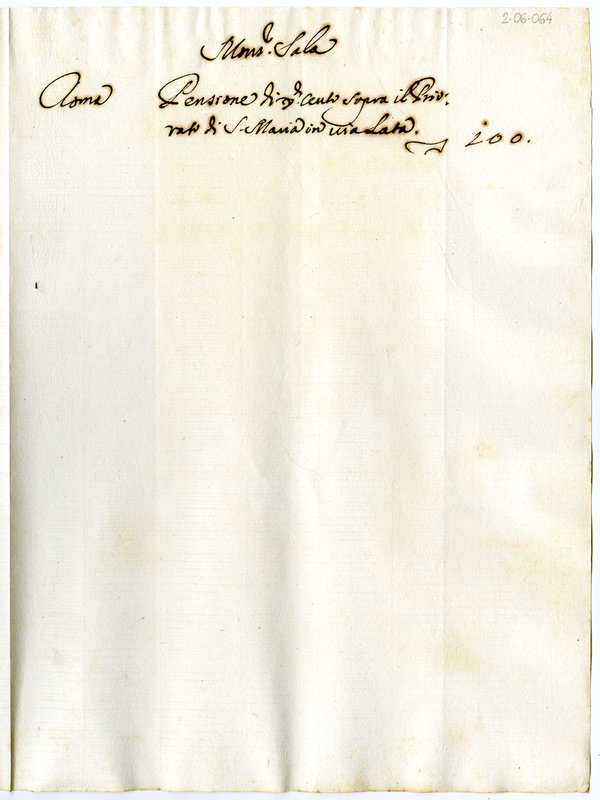 2·06·064
Mons.r Sala
Roma Pensione di Cento sopra il Prio-
rato di S. Maria in via Lata. 100.